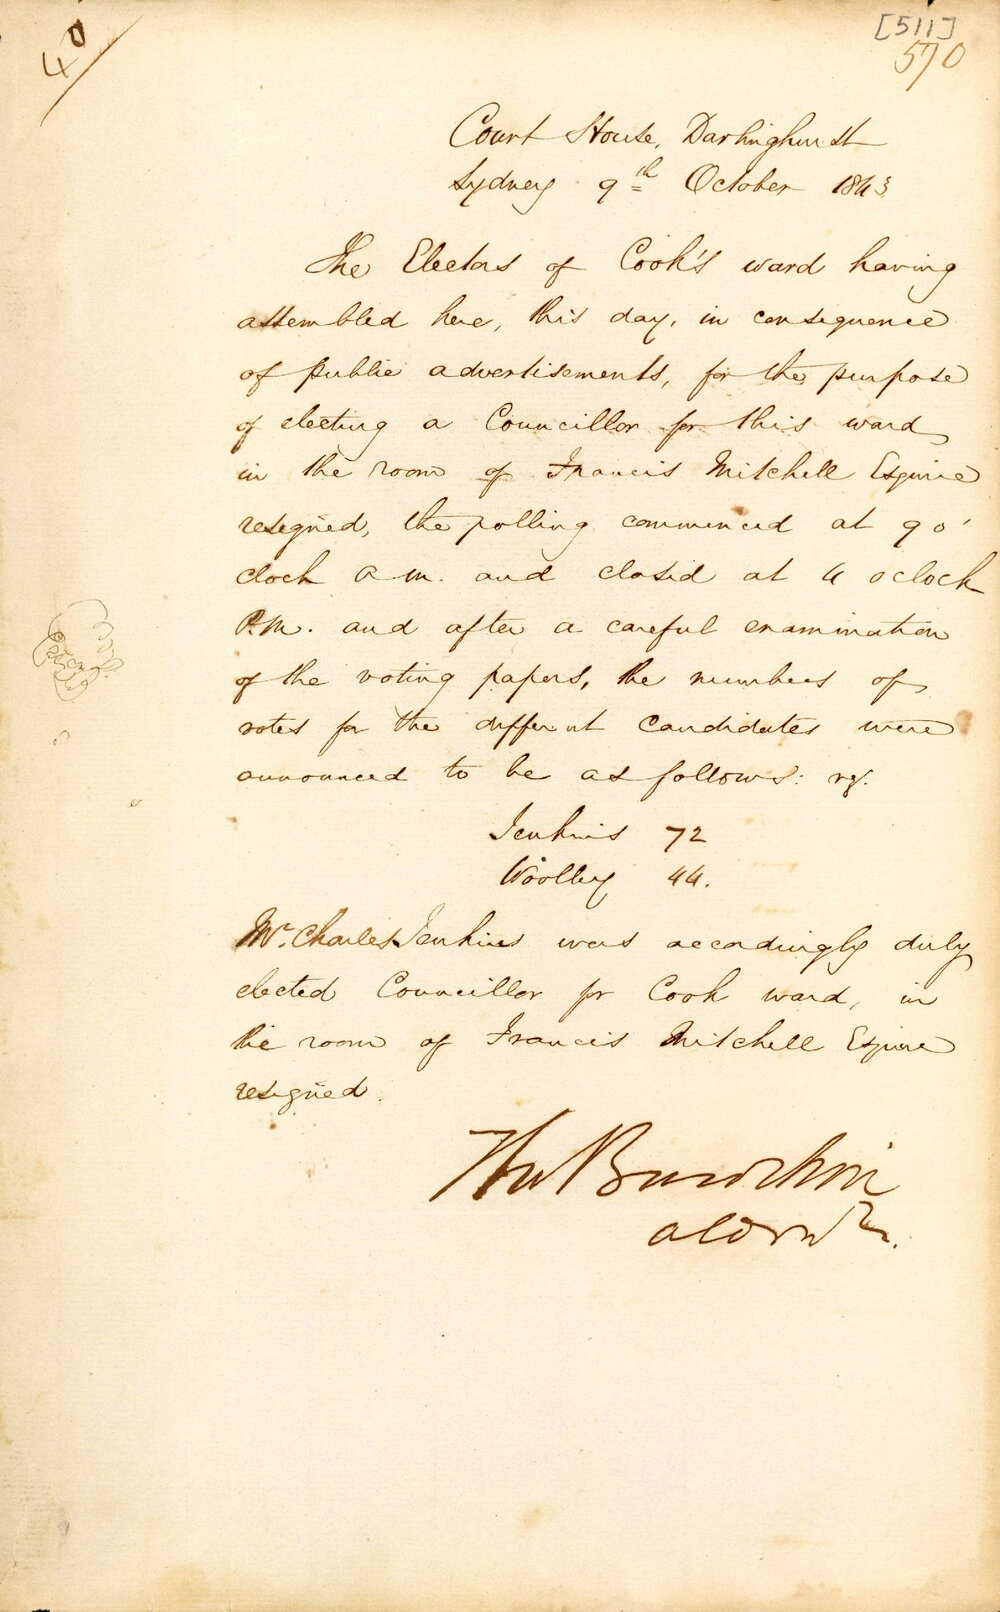 40
[511]
570
Court House, Darlinghurst
Sydney 9th October 1843
The Electors of Cook's ward having
assembled here, this day, in consequence
of public advertisements, for the purpose
of electing a Councillor for this ward
in the room of Francis Mitchell Esquire
resigned, the polling commenced at 9 o'
clock a.m. and closed at 4 oclock
P.M. and after a careful examination
of the voting papers, the numbers of
votes for the different candidates were
announced to be as follows: vz.
Jenkins 72
Woolley 44.
Mr. Charles Jenkins was accordingly duly
elected Councillor for Cook ward, in
the room of Francis Mitchell Esquire
resigned.
Aldermn.